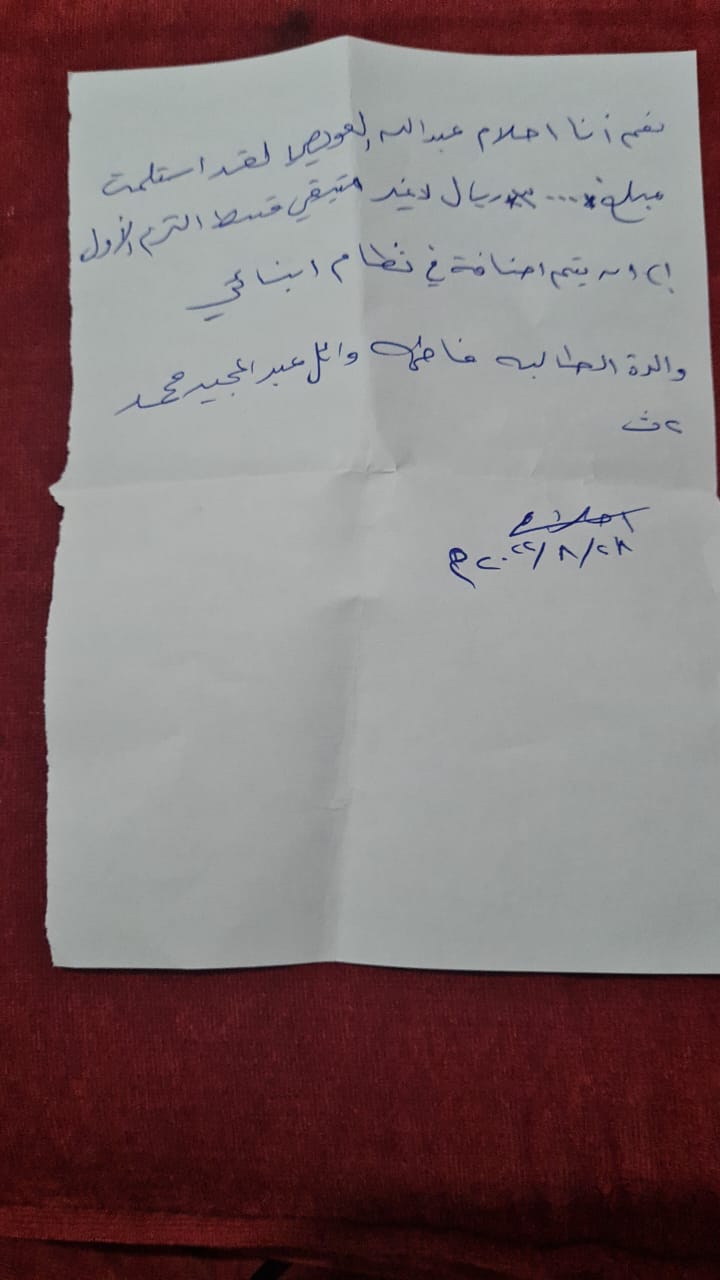 نعم أنا احلام عبدالله العويصي لقد استلمت
مبلغ ريال لاغير متبقي قسط الترم الأول
إلى ان يتم اضافة في نظام ابنائي
والدة الطالبه فاطمه وائل عبد المجيد محمد
٢ث
احلام
٢٨/٨/٢٠٢٢م